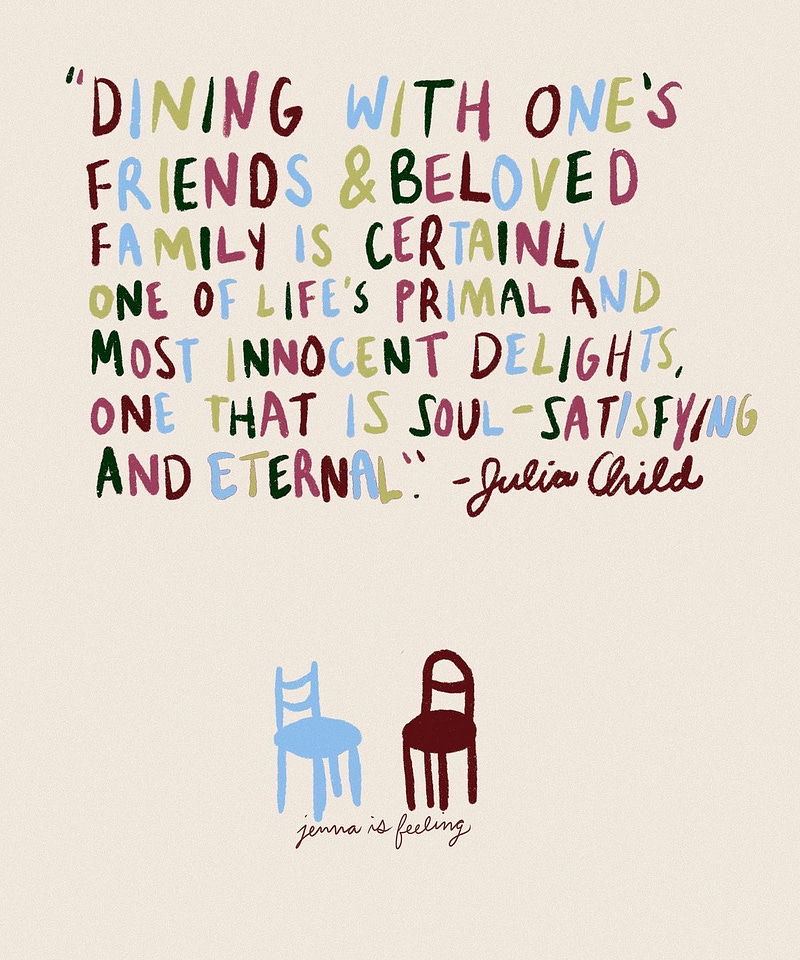 "DINING WITH ONE'S
FRIENDS & BELOVED
FAMILY IS CERTAINLY
ONE OF LIFE'S PRIMAL AND
MOST INNOCENT DELIGHTS,
ONE THAT IS SOUL-SATISFYING
AND ETERNAL". -Julia Child
jenna is feeling